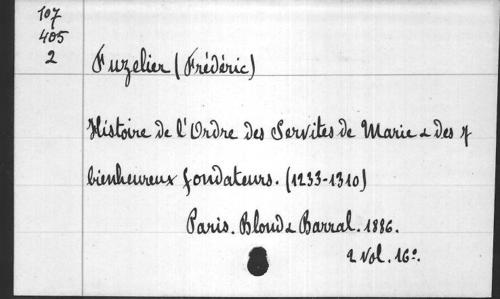 107
405
2
Fuzelier (Frédéric)
Histoire de l'Ordre des Servites de Marie & des 7
bienheureux fondateurs. (1233-1310)
Paris. Bloud & Barral. 1886.
2 Vol. 16°.